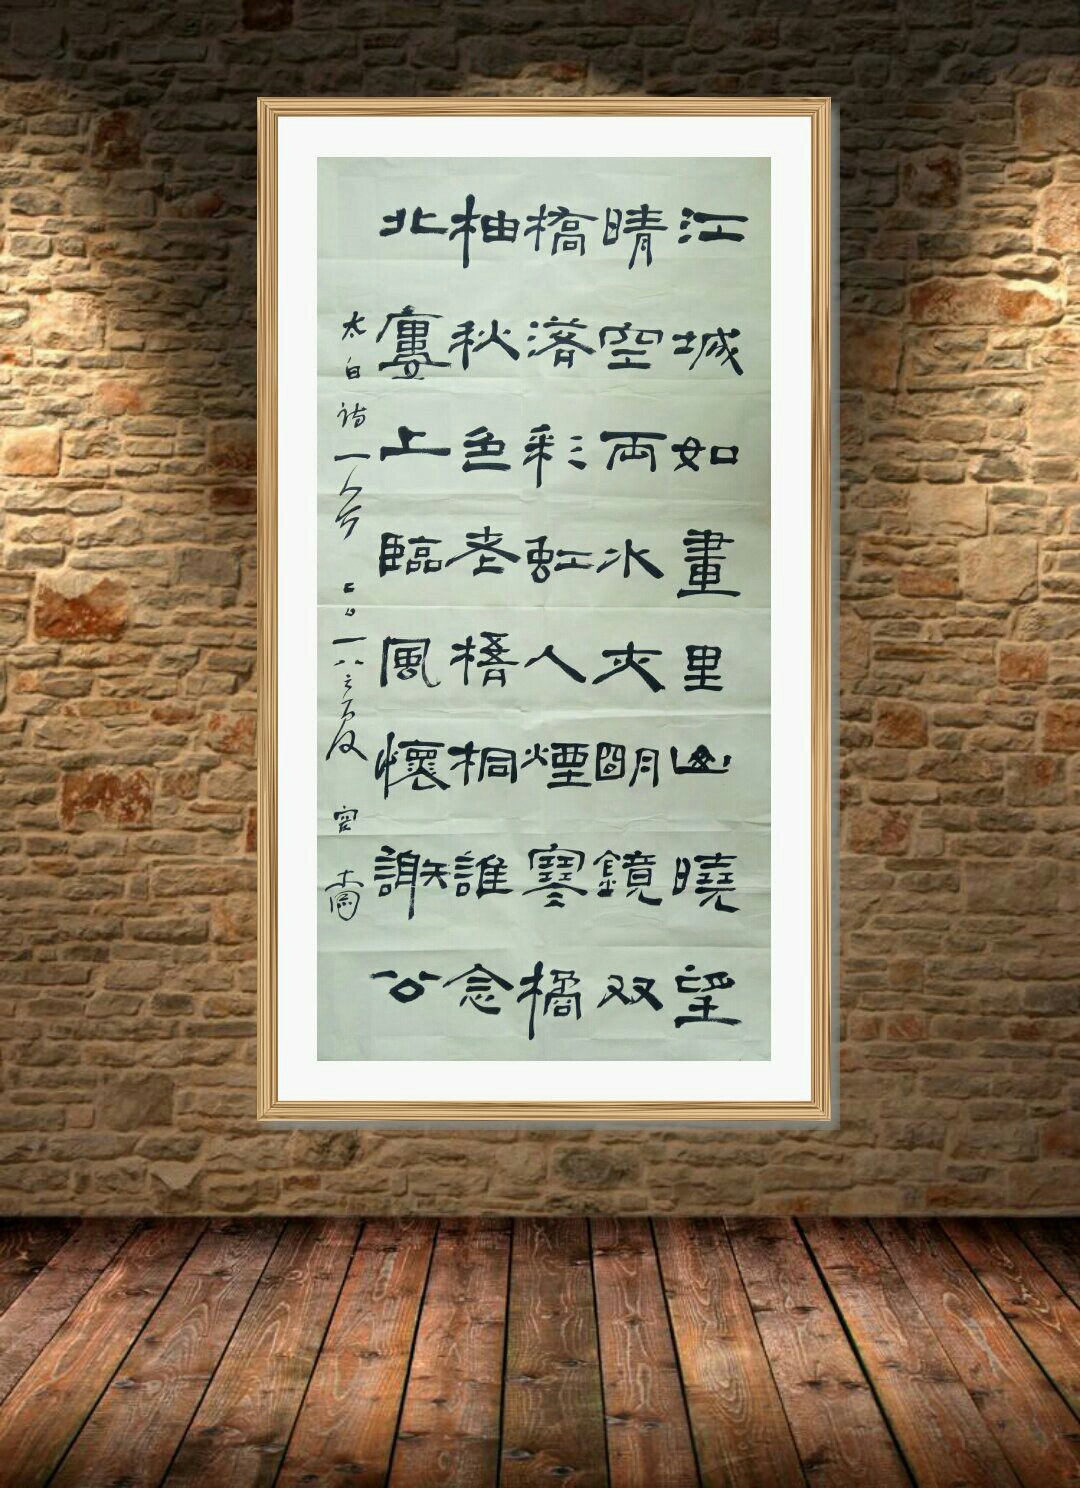 江城如畫里山曉望
晴空两水夾明鏡双
橋落彩虹人煙寒橘
柚秋色老梧桐誰念
北上臨風懷謝公
太白詩一首 二〇一八之夏